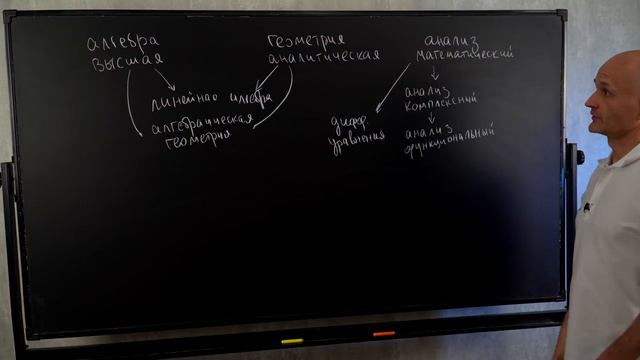 алгебра
высшая
геометрия
аналитическая
анализ
математический
линейная алгебра
алгебраическая
геометрия
дифф.
уравнения
анализ
комплексный
анализ
функциональный